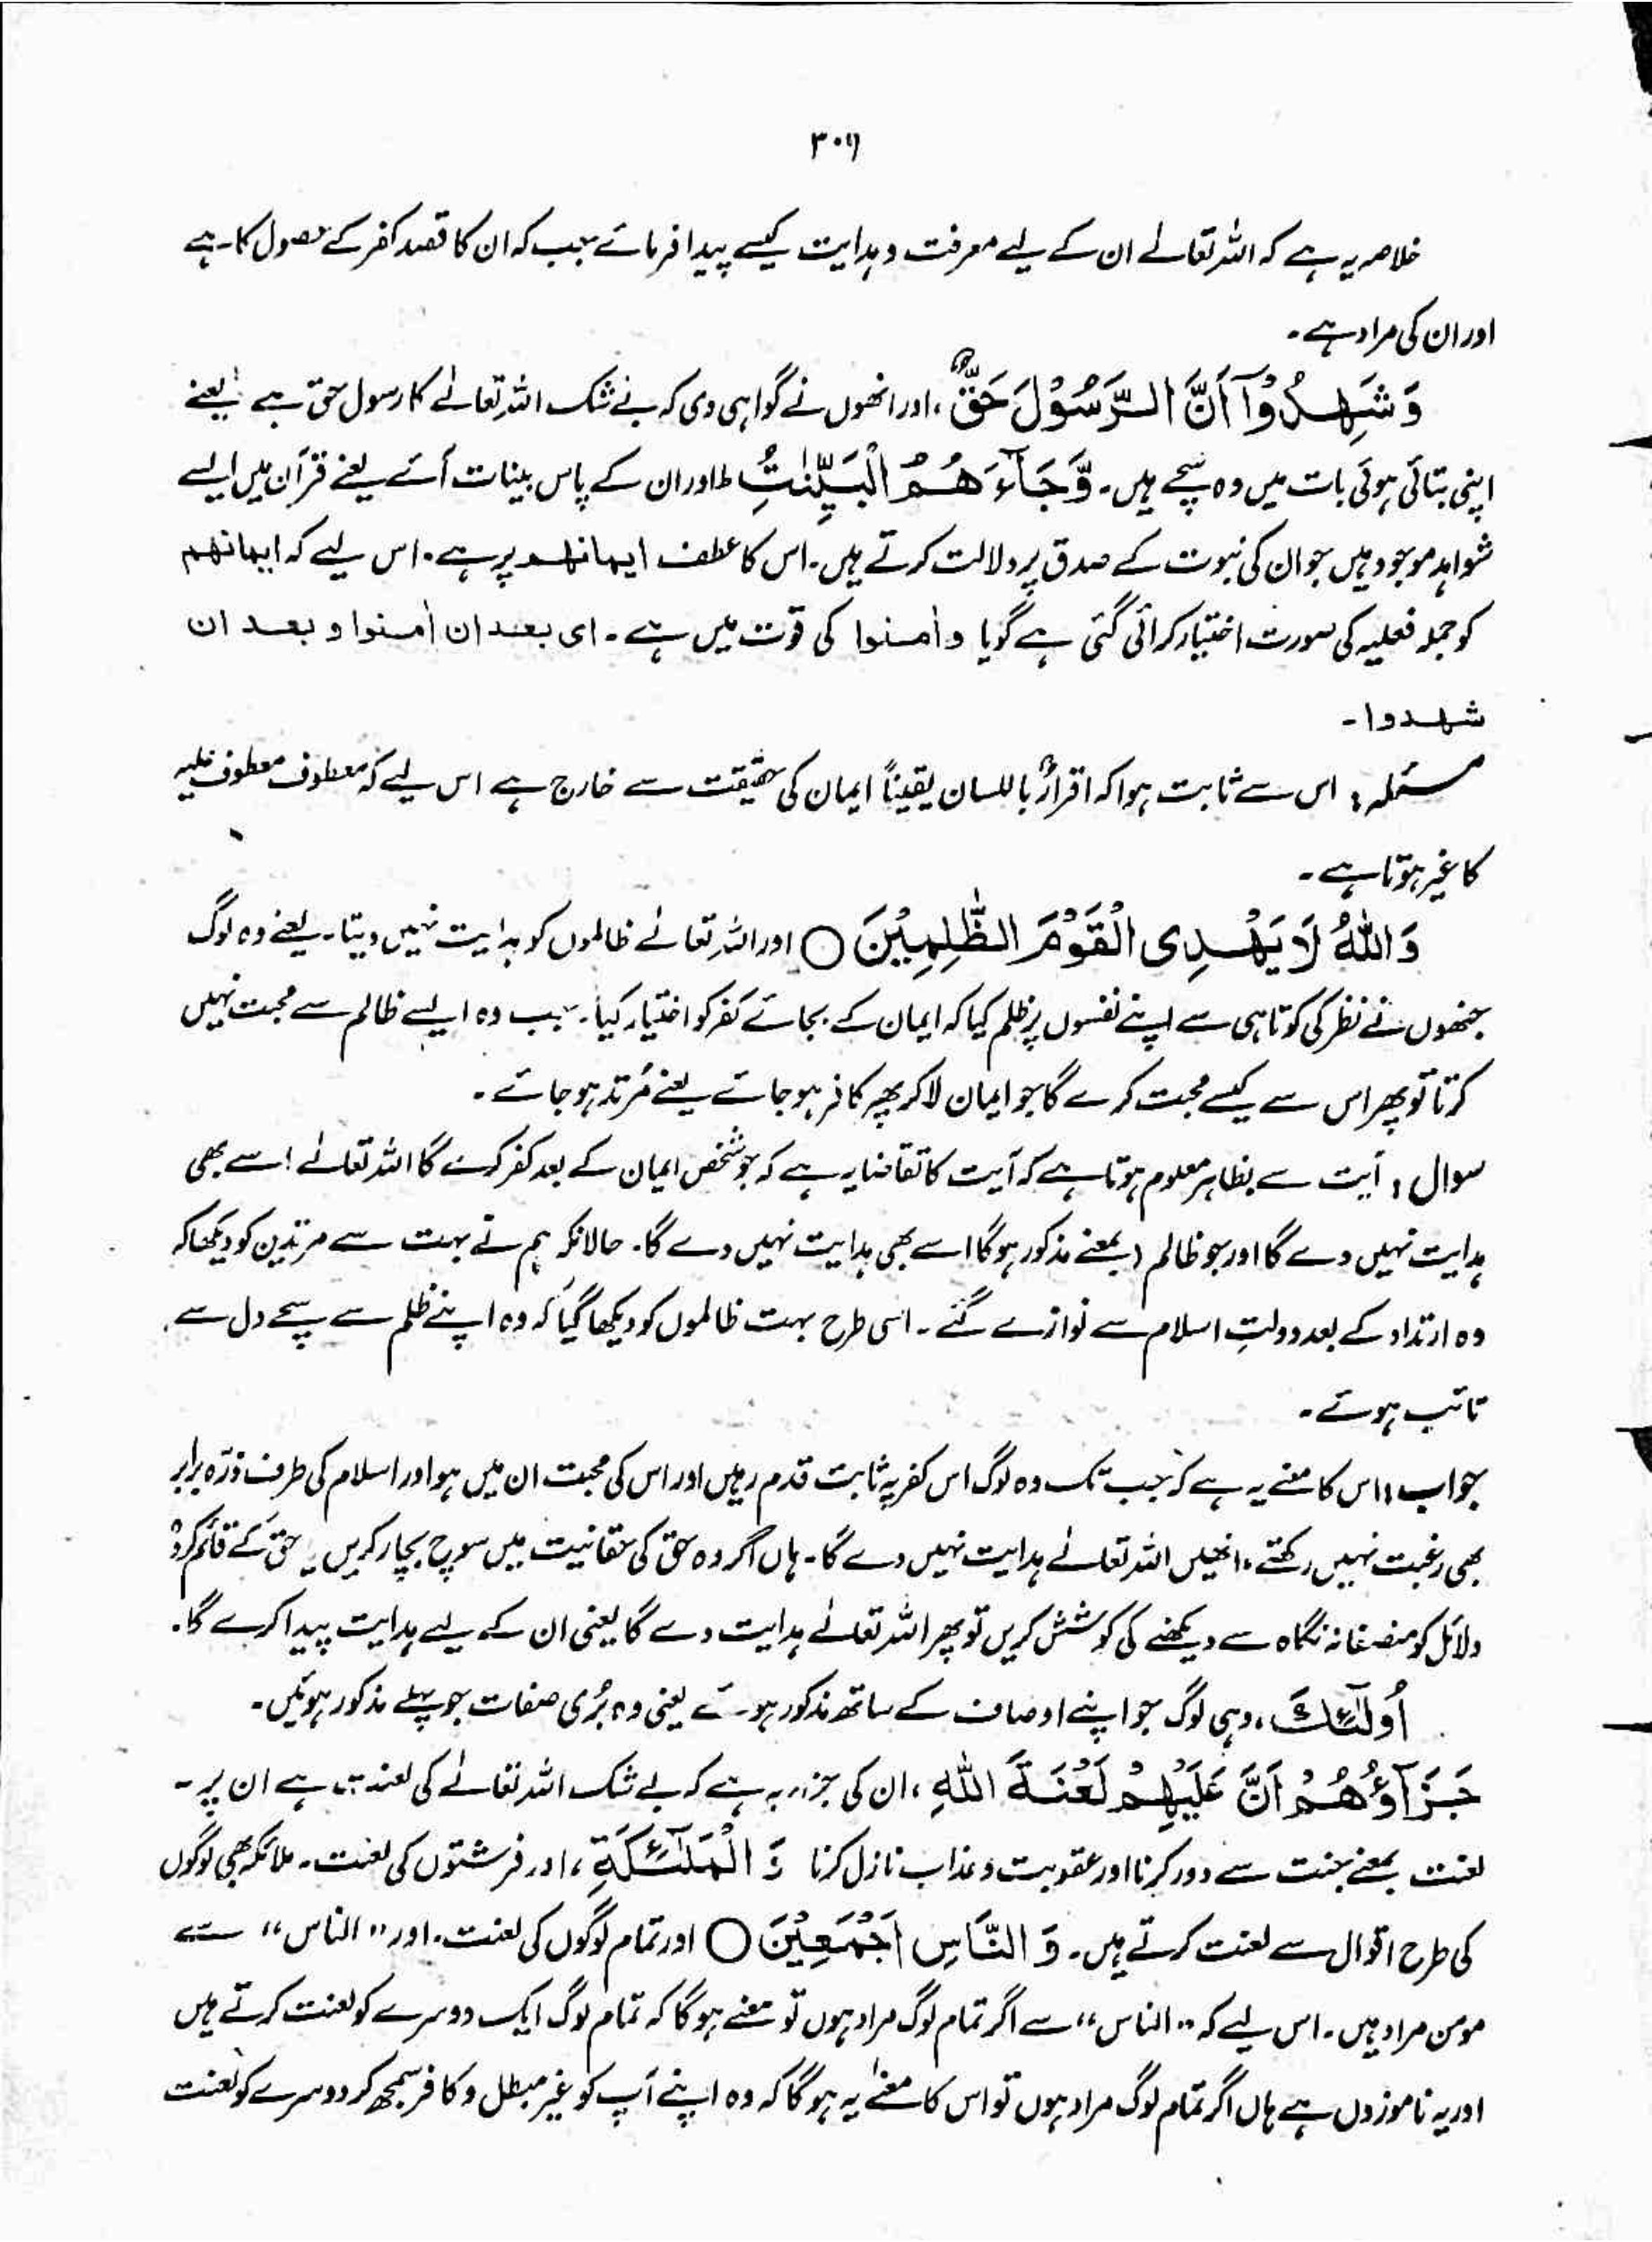 ۳۰۶
خلاصہ یہ ہے کہ اللہ تعالےٰ ان کے لیے معرفت و ہدایت کیسے پیدا فرمائے جب کہ ان کا قصد کفر کے حصول کا ہے
اور ان کی مراد ہے۔
وَشَهِدُوْٓا اَنَّ الرَّسُوْلَ حَقٌّ، اور انھوں نے گواہی دی کہ بے شک اللہ تعالےٰ کا رسول حق ہے یعنے
اپنی بتائی ہوئی بات میں وہ سچے ہیں۔ وَّجَآءَهُمُ الْبَيِّنٰتُ ط اور ان کے پاس بینات آئے یعنے قرآن میں ایسے
شواہد موجود ہیں جو ان کی نبوت کے صدق پر دلالت کرتے ہیں۔ اس کا عطف ایمانھم پر ہے۔ اس لیے کہ ایمانھم
کو جملہ فعلیہ کی صورت اختیار کرائی گئی ہے گویا و اٰمنوا کی قوت میں ہے۔ ای بعد ان اٰمنوا و بعد ان
شھدوا۔
مسئلہ: اس سے ثابت ہوا کہ اقرارٌ باللسان یقیناً ایمان کی حقیقت سے خارج ہے اس لیے کہ معطوف معطوف علیہ
کا غیر ہوتا ہے۔
وَاللّٰهُ لَا يَهْدِى الْقَوْمَ الظّٰلِمِيْنَ ○ اور اللہ تعالےٰ ظالموں کو ہدایت نہیں دیتا۔ یعنے وہ لوگ
جنھوں نے نظر کی کوتاہی سے اپنے نفسوں پر ظلم کیا کہ ایمان کے بجائے کفر کو اختیار کیا۔ جب وہ ایسے ظالم سے محبت نہیں
کرتا تو پھر اس سے کیسے محبت کرے گا جو ایمان لا کر پھر کافر ہو جائے یعنے مُرتد ہو جائے۔
سوال: آیت سے بظاہر معلوم ہوتا ہے کہ آیت کا تقاضا یہ ہے کہ جو شخص ایمان کے بعد کفر کرے گا اللہ تعالےٰ اسے بھی
ہدایت نہیں دے گا اور جو ظالم (بمعنے مذکور ہوگا اسے بھی ہدایت نہیں دے گا۔ حالانکہ ہم نے بہت سے مرتدین کو دیکھا کہ
وہ ارتداد کے بعد دولتِ اسلام سے نوازے گئے۔ اسی طرح بہت ظالموں کو دیکھا گیا کہ وہ اپنے ظلم سے سچے دل سے
تائب ہوئے۔
جواب: اس کا معنے یہ ہے کہ جب تک وہ لوگ اس کفر پہ ثابت قدم رہیں اور اس کی محبت ان میں ہو اور اسلام کی طرف ذرّہ برابر
بھی رغبت نہیں رکھتے، انھیں اللہ تعالےٰ ہدایت نہیں دے گا۔ ہاں اگر وہ حق کی حقانیت میں سوچ بچار کریں یہ حق کے قائم کردہ
دلائل کو منصفانہ نگاہ سے دیکھنے کی کوشش کریں تو پھر اللہ تعالےٰ ہدایت دے گا یعنی ان کے لیے ہدایت پیدا کرے گا۔
اُولٰٓئِكَ، وہی لوگ جو اپنے اوصاف کے ساتھ مذکور ہوئے یعنی وہ بُری صفات جو پہلے مذکور ہوئیں۔
جَزَآؤُهُمْ اَنَّ عَلَيْهِمْ لَعْنَةَ اللّٰهِ، ان کی جزا یہ ہے کہ بے شک اللہ تعالےٰ کی لعنت ہے ان پر۔
لعنت بمعنے جنت سے دور کرنا اور عقوبت و عذاب نازل کرنا وَ الْمَلٰٓئِكَةِ، اور فرشتوں کی لعنت۔ ملائکہ بھی لوگوں
کی طرح اقوال سے لعنت کرتے ہیں۔ وَ النَّاسِ اَجْمَعِيْنَ ○ اور تمام لوگوں کی لعنت۔ اور "الناس" سے
مومن مراد ہیں۔ اس لیے کہ "الناس" سے اگر تمام لوگ مراد ہوں تو معنے ہوگا کہ تمام لوگ ایک دوسرے کو لعنت کرتے ہیں
اور یہ ناموزوں ہے ہاں اگر تمام لوگ مراد ہوں تو اس کا معنےٰ یہ ہوگا کہ وہ اپنے آپ کو غیر مبطل و کافر سمجھ کر دوسرے کو لعنت